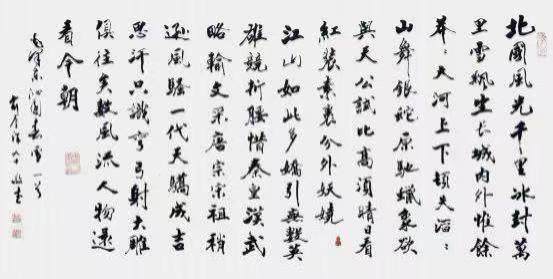 北國風光千里冰封萬
里雪飄望長城內外惟餘
莽〻大河上下頓失滔〻
山舞銀蛇原馳蠟象欲
與天公試比高須晴日看
紅裝素裹分外妖嬈
江山如此多嬌引無數英
雄競折腰惜秦皇漢武
略輸文采唐宗宋祖稍
遜風騷一代天驕成吉
思汗只識彎弓射大雕
俱往矣數風流人物還
看今朝
毛澤東沁園春雪一首